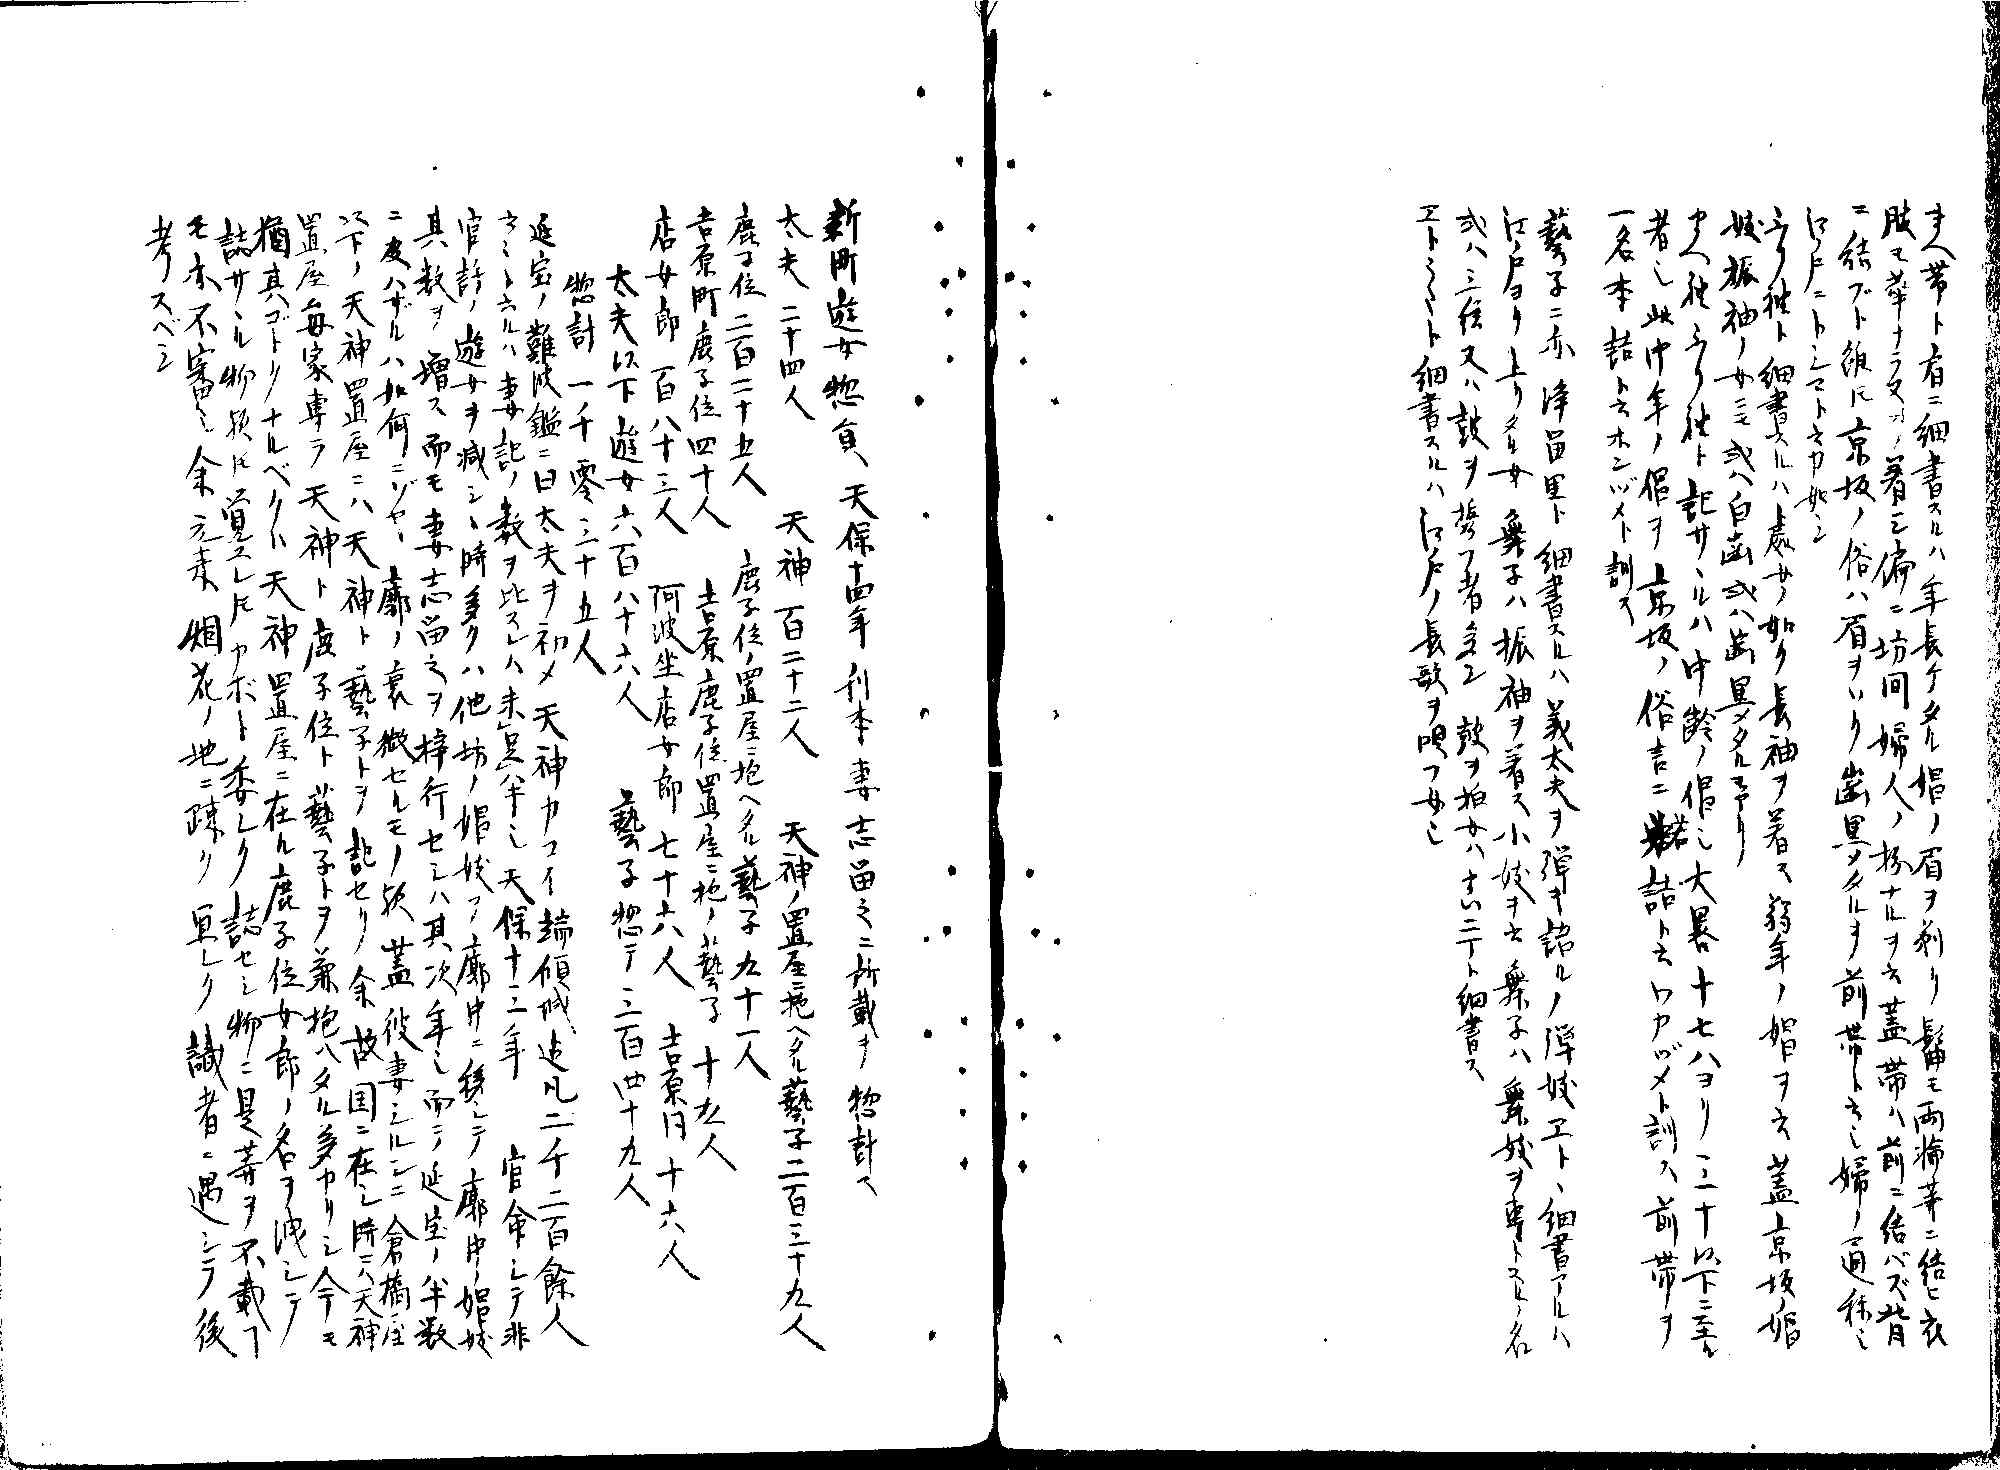 まへ帯ト肩ニ細書スルハ年長ケタル娼ノ眉ヲ剃リ髷モ両輪等ニ結ヒ衣
服モ華ナラヌヲ着シ偏ニ坊間婦人ノ扮ナルヲ云蓋帯ハ前ニ結バズ背
ニ結ブト雖ドモ京坂ノ俗ハ眉ヲソリ歯黒メタルヲ前帯ト云シ婦ノ通称シ
江戸ニトシマト云カ如シ
ふり袖ト細書スルハ處女ノ如ク長袖ヲ着ス弱年ノ娼ヲ云蓋京坂ノ娼
妓振袖ノ女ニモ或ハ白歯或ハ歯黒メタルモアリ
まへ袖ふり袖ト記サヾルハ中齢ノ倡也大畧十七八ヨリ二三十以下ニ至ル
者也此中年ノ倡ヲ京坂ノ俗言ニ若詰ト云ワカヅメト訓ス前帯ヲ
一名本詰ト云ホンヅメト訓ス
藝子ニ亦浄留里ト細書スルハ義太夫ヲ弾キ語ルノ弾妓エドヽ細書アルハ
江戸ヨリ上リタル女舞子ハ振袖ヲ着ス小妓ヲ云舞子ハ舞妓ヲ専トスルノ名
或ハ三絃又ハ鼓ヲ携フ者多シ鼓ヲ拍女ハ
エドうたト細書スルハ江戸ノ長歌ヲ唄フ女也
新町遊女惣員 天保十四年刊本妻志留之ニ所載ヲ惣計ス
太夫 二十四人 天神 百二十二人 天神ノ置屋ニ抱ヘタル藝子二百三十九人
鹿子位 二百二十五人 鹿子位ノ置屋ニ抱ヘタル藝子九十一人
吉原町鹿子位四十人 吉原鹿子位置屋ニ抱ノ藝子 十九人
店女郎 百八十三人 阿波坐店女郎 七十六人 吉原同 十六人
太夫以下遊女六百八十六人 藝子惣テ三百四十九人
惣計 一千零三十五人
延宝ノ難波鑑ニ曰太夫ヲ初メ天神カコイ端傾城迄凡二千二百餘人
云々ト云ルハ妻記ノ数ヲ比スレハ未足半也天保十三年 官命シテ非
官許ノ遊女ヲ減シヽ時多クハ他坊ノ娼妓ヲ廓中ニ移シテ廓中ノ娼妓
其数ヲ増ス而モ妻志留之ヲ梓行セシハ其次年也而シテ延宝ノ半数
ニ及ハザルハ如何ニゾヤ廓ノ衰微セルモノ歟蓋彼妻シルシニ倉橋屋
以下ノ天神置屋ニハ天神ト藝子トヲ記セリ余故国ニ在シ時ニハ天神
置屋毎家専ラ天神ト鹿子位ト藝子トヲ兼抱ヘタル多カリシ今テモ
猶其ゴトクナルベクハ天神置屋ニ在ル鹿子位女郎ノ名ヲ洩シテ
誌サヾル物歟ト覚スレドモカボト委シク誌セシ物ニ是等ヲ不載コ
モ亦不審シ余元来烟花ノ地ニ疎ク冝シク識者ニ遇シテ後
考スベシ